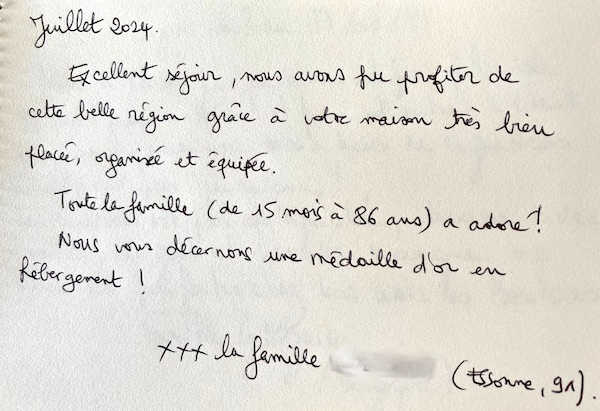 Juillet 2024.
Excellent séjour, nous avons pu profiter de
cette belle région grâce à votre maison très bien
placée, organisée et équipée.
Toute la famille (de 15 mois à 86 ans) a adoré !
Nous vous décernons une médaille d'or en
hébergement !
xxx la famille
(Essonne, 91).